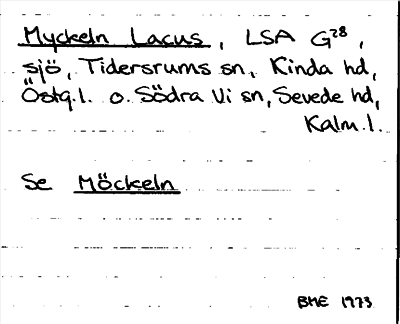 Myckeln Lacus, LSA G28,
sjö, Tidersrums sn, Kinda hd,
Östg.l. o. Södra Vi sn, Sevede hd,
Kalm.l.
Se Möckeln
BME 1973